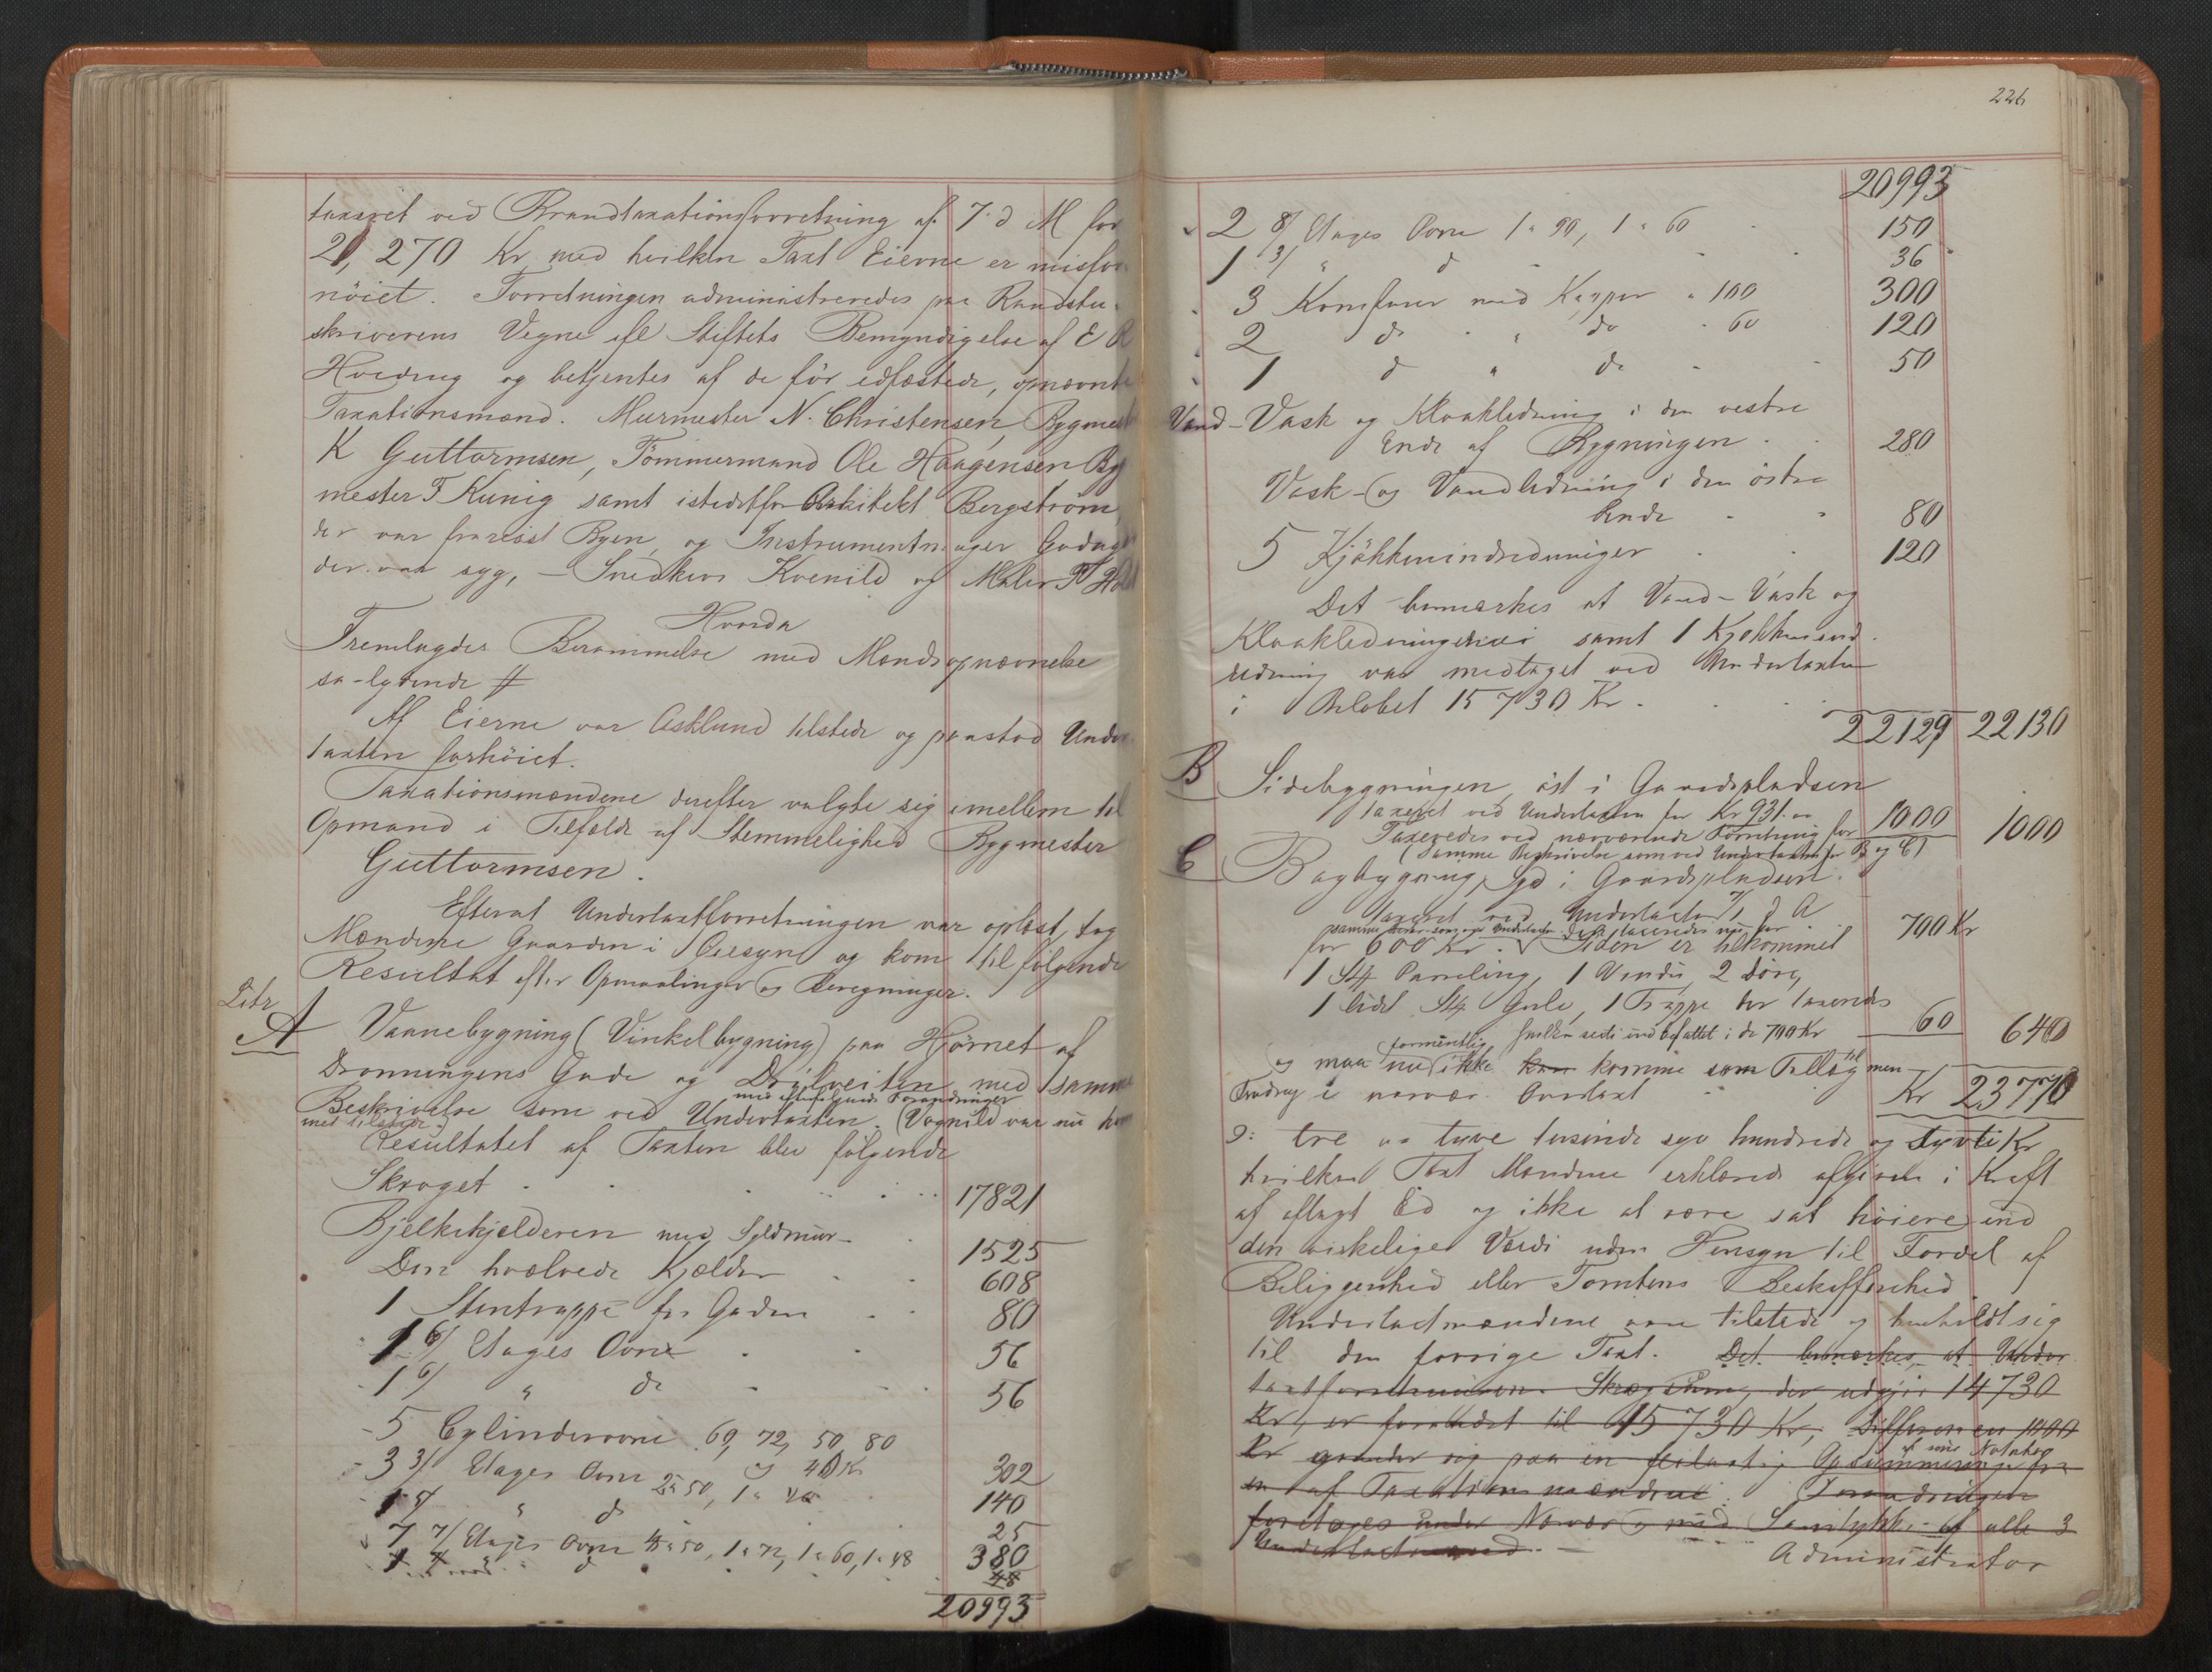 taxeret ved Brandtaxationsforretning af 7 d M for
21,270 Kr med hvilken Taxt Eierne er misfor-
nöiet. Forretningen administreredes paa Raadstu-
skriverens Vegne ifl Stiftets Bemyndigelse af E R
Hvedrug og betjentes af de för edfæstede, opnævnte
Taxationsmænd. Murmester N. Christensen, Bygmest
K Guttormsen, Tömmermand Ole Haagensen, Byg
mester F Kunig samt istedetfor Arkitekt Bergström,
der var frareist Byen, og Instrumentmager
der var syg, – Snedker Kvenild og Maler
Hvorda
Fremlagdes Berammelse med Mændsopnævnelse
sa-lydende #
Af Eierne var Asklund tilstede og paastod Under-
taxten forhöiet.
Taxationsmændene derefter valgte sig imellem til
Opmand i Tilfælde af Stemmelighed Bygmester
Guttormsen.
Efterat Undertaxtforretningen var oplæst, tog
Mændene Gaarden i Öiesyn og kom til fölgende
Resultat efter Opmaalinger og Beregninger.
Litr
A Vaanebygning (Vinkelbygning) paa Hjörnet af
Dronningens Gade og Dröiveiten med samme
med efterfølgende Forandringer
Beskrivelse som ved Undertaxten. (Vognild var nu
med tilstede.)
Resultatet af Taxten blev fölgende
Skroget 17821
Bjelkekjelderen med Syldmur 1525
Den hvælvede Kjelder 608
1 Stentrappe fra Gaden 80
1 6/ Etages Ovne 56
1 6/ " do 56
5 Cylinderovne 69, 72, 50 80
og 40 Kr 302
3 3/ Etages Ovne 2 a 50, 1 a 40 140
1 5/ " do 25
7 7/ Etages Ovne 4 a 50, 1 a 72, 1 a 60, 1 a 48 380
48
20993
226
20993
2 8/ Etages Ovne 1 a 90, 1 a 60 150
1 3/ " d 36
3 Komfurer med Kapper a 100 300
2 do " do a 60 120
1 d " do 50
Vand-Vask og Kloakledning i den vestre
Ende af Bygningen 280
Vask- og Vandledning i den östre
Ende 80
5 Kjökkenindredninger 120
Det bemærkes at Vand-Vask og
Kloakledningerne samt 1 Kjøkkenind-
redning var medtaget ved Undertaxten
i Belöbet 15730 Kr.
22129 22130
B Sidebygningen öst i Gaardspladsen
taxeret ved Undertaxten for Kr 931.00
Taxeredes ved nærværende Forretning for 1000 1000
(Samme Beskrivelse som ved Undertaxten for B og C)
C Bagbygning, syd i Gaardspladsen.
taxeret ved Undertaxten 7/ d A
for 600 Kr. Siden er tilkommet 700 Kr
1 Stk Paneling, 1 Vindu, 2 Döre,
1 lidet Stk Gulv, 1 Trappe der taxeredes 60 640
hvilken sidste indbefattet i de 700 Kr
og maa formentlig nu ikke kan komme som Tillæg men til
Fradrag i nærvær. Overtaxt Kr 23770
ɔ: tre og tyve tusinde syv hundrede og sytti Kr
hvilken Taxt Mændene erklærede afgiven i Kraft
af aflagt Ed og ikke at være sat höiere end
den virkelige Værdi uden Hensyn til Fordel af
Beliggenhed eller Tomtens Beskaffenhed
Undertaxtmændene vare tilstede og henholdt sig
til den forrige Taxt. Det bemærkes, at Under
taxtforretningens Skrogsum, der udgjör 14730
Kr, er forandret til 15730 Kr, Differencen 1000
Kr grunder sig paa en feilagtig Opsummering fra
af sine Notater
en af Taxationsmændene. Forandringen
foretages under Nærvær og med Samtykke af alle 3
Undertaxtmænd. –
Administrator